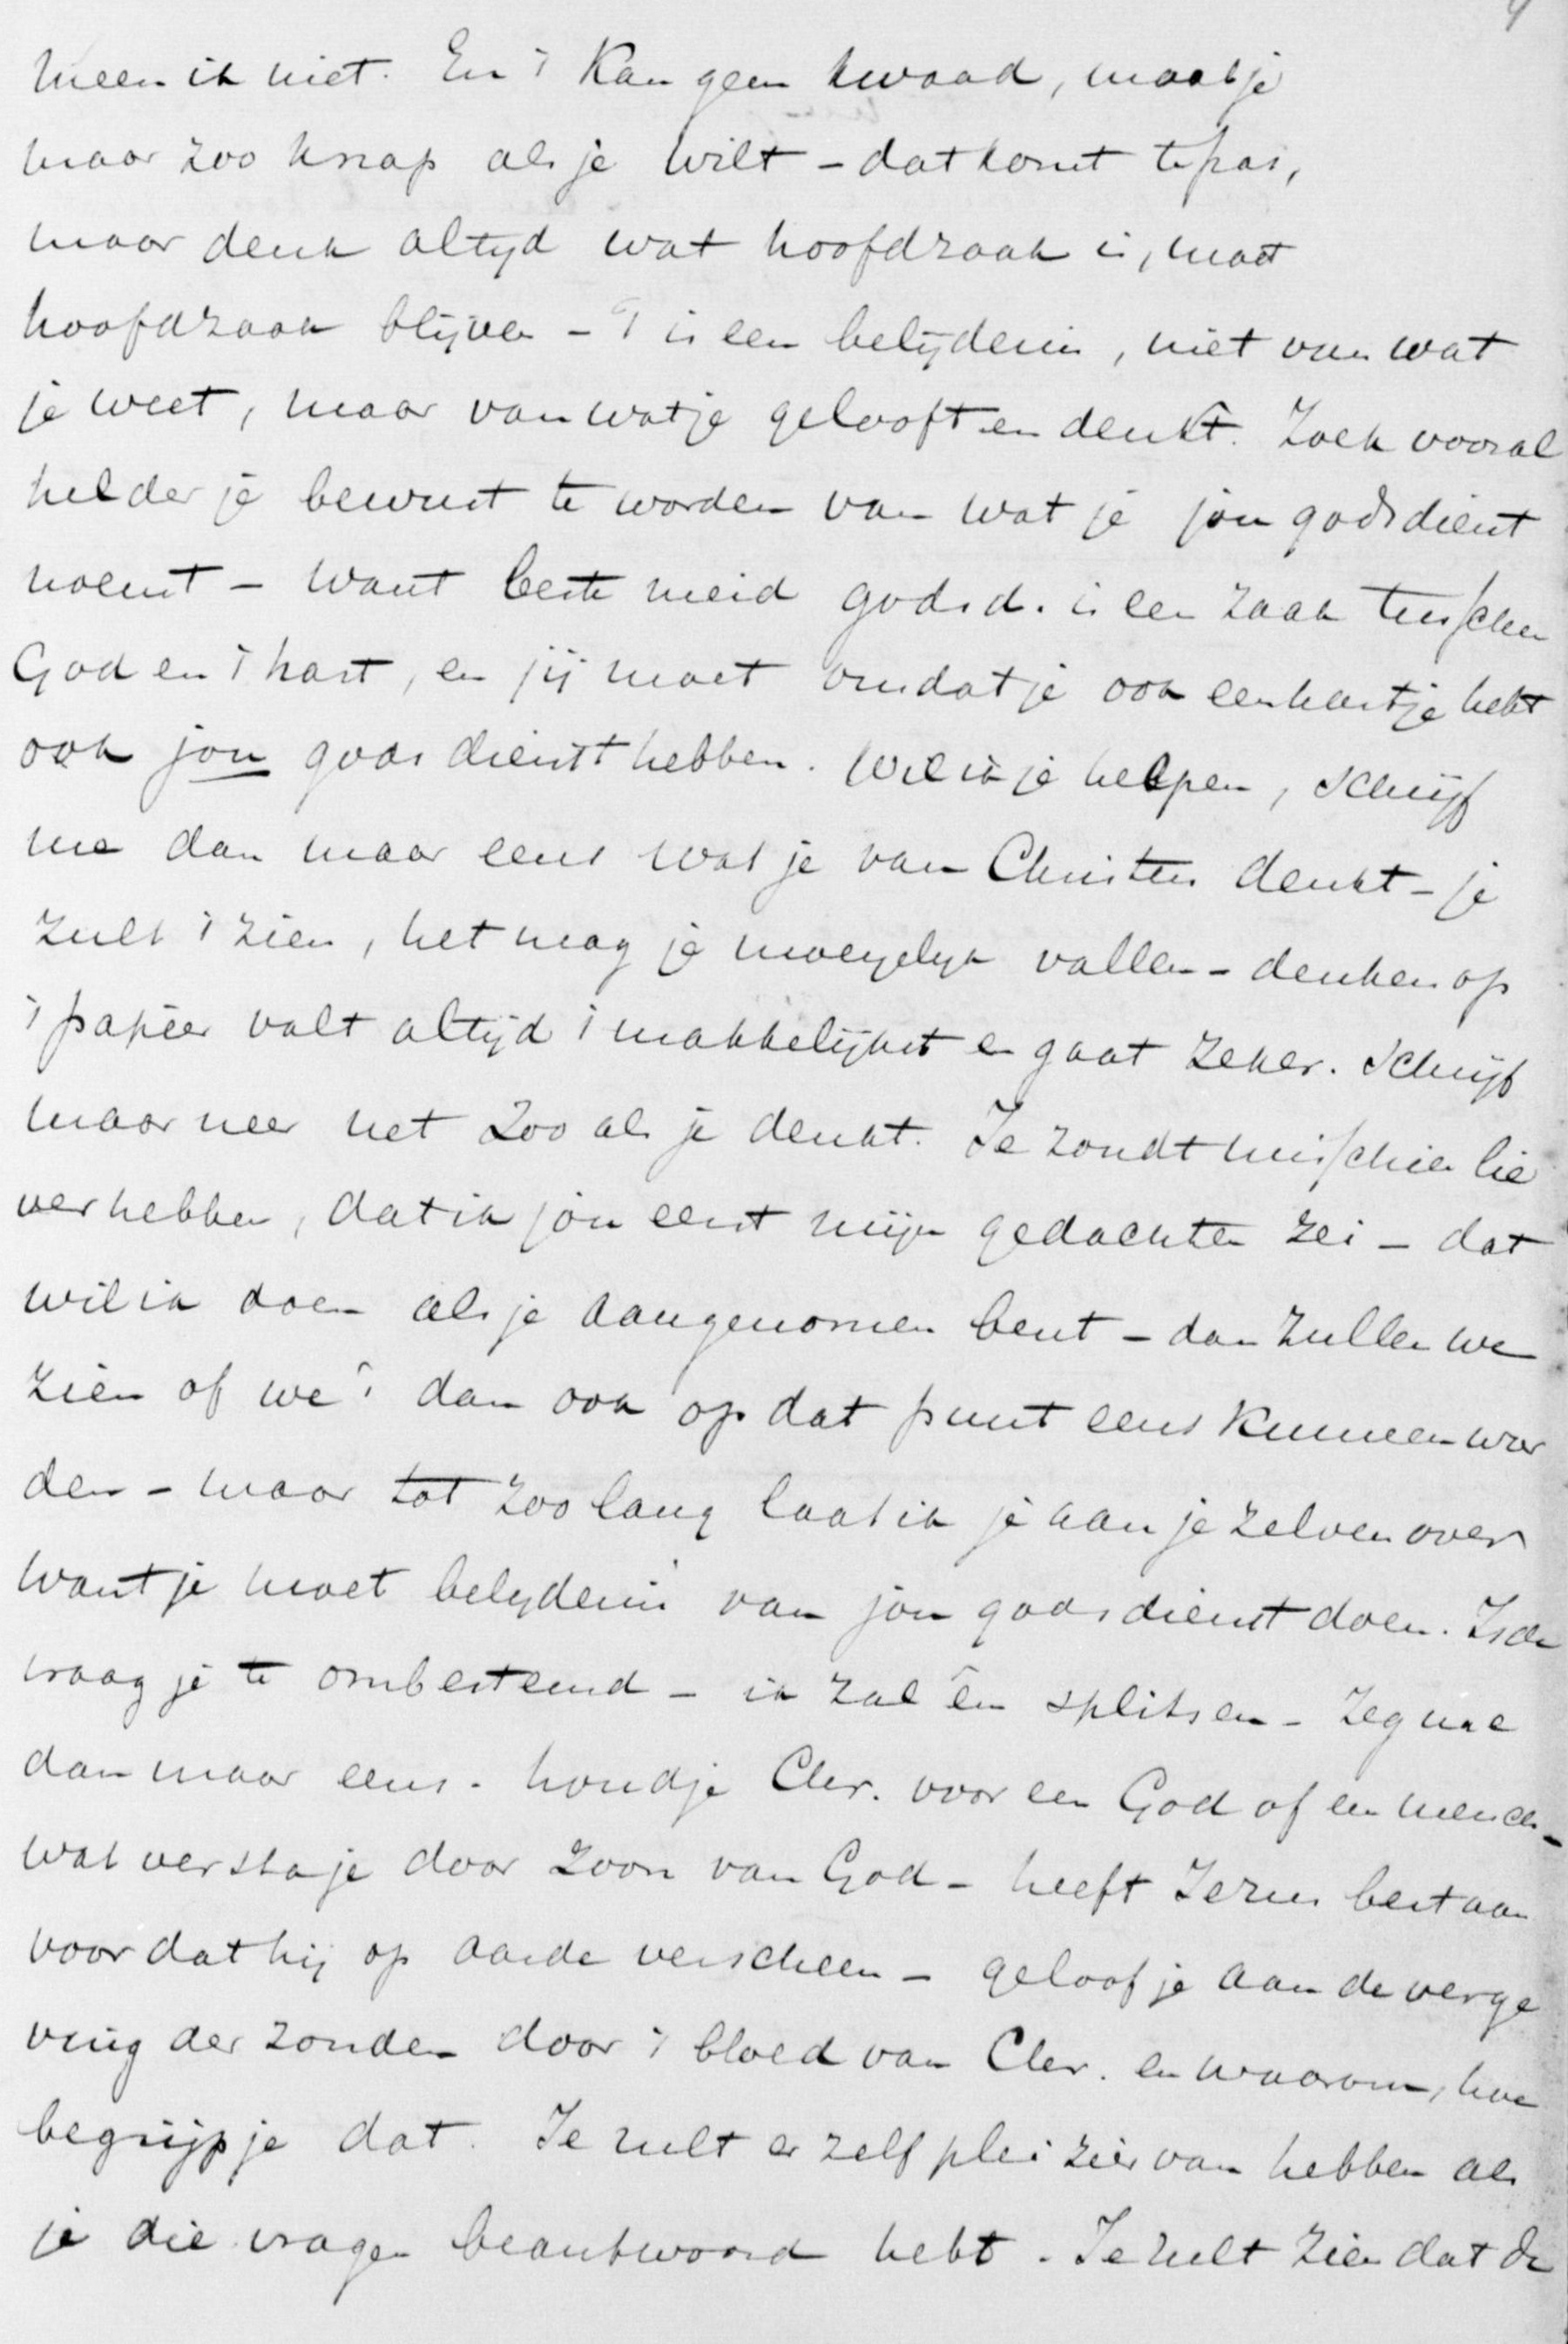 meen ik niet. En 't kan geen kwaad, maak je
maar zoo knap als je wilt – dat komt te pas,
maar denk altyd wat hoofdzaak is, moet
hoofdzaak blijven – 't is een belijdenis, niet van wat
je weet, maar van wat je gelooft en denkt. Zoek vooral
helder je bewust te worden van wat je jou godsdienst
noemt – want beste meid godsd. is een zaak tusschen
God en 't hart, en jij moet omdat je ook een hartje hebt
ook jou godsdienst hebben. Wil ik je helpen, schrijf
me dan maar eens wat je van Christus denkt – je
zult 't zien, het mag je moeyelyk vallen – denken op
't papier valt altijd 't makkelijkst en gaat zeker. Schrijf
maar neer net zoo als je denkt. Je zoudt misschien lie
ver hebben, dat ik jou eerst mijn gedachten zei – dat
wil ik doen als je aangenomen bent – dan zullen we
zien of we 't dan ook op dat punt eens kunnen wor
den – maar tot zoo lang laat ik je aan je zelven over
want je moet belydenis van jou godsdienst doen. Is de
vraag je te onbestemd – ik zal 'em splitsen – Zeg me
dan maar eens. houdje Chr. voor een God of een mensch –
wat versta je door Zoon van God – heeft Jezus bestaan
voor dat hij op aarde verscheen – geloof je aan de verge
ving der zonden door 't bloed van Chr. en waarom, hoe
begrijp je dat. Je zult er zelf plei zier van hebben als
je die vragen beantwoord hebt. Je zult zien dat de